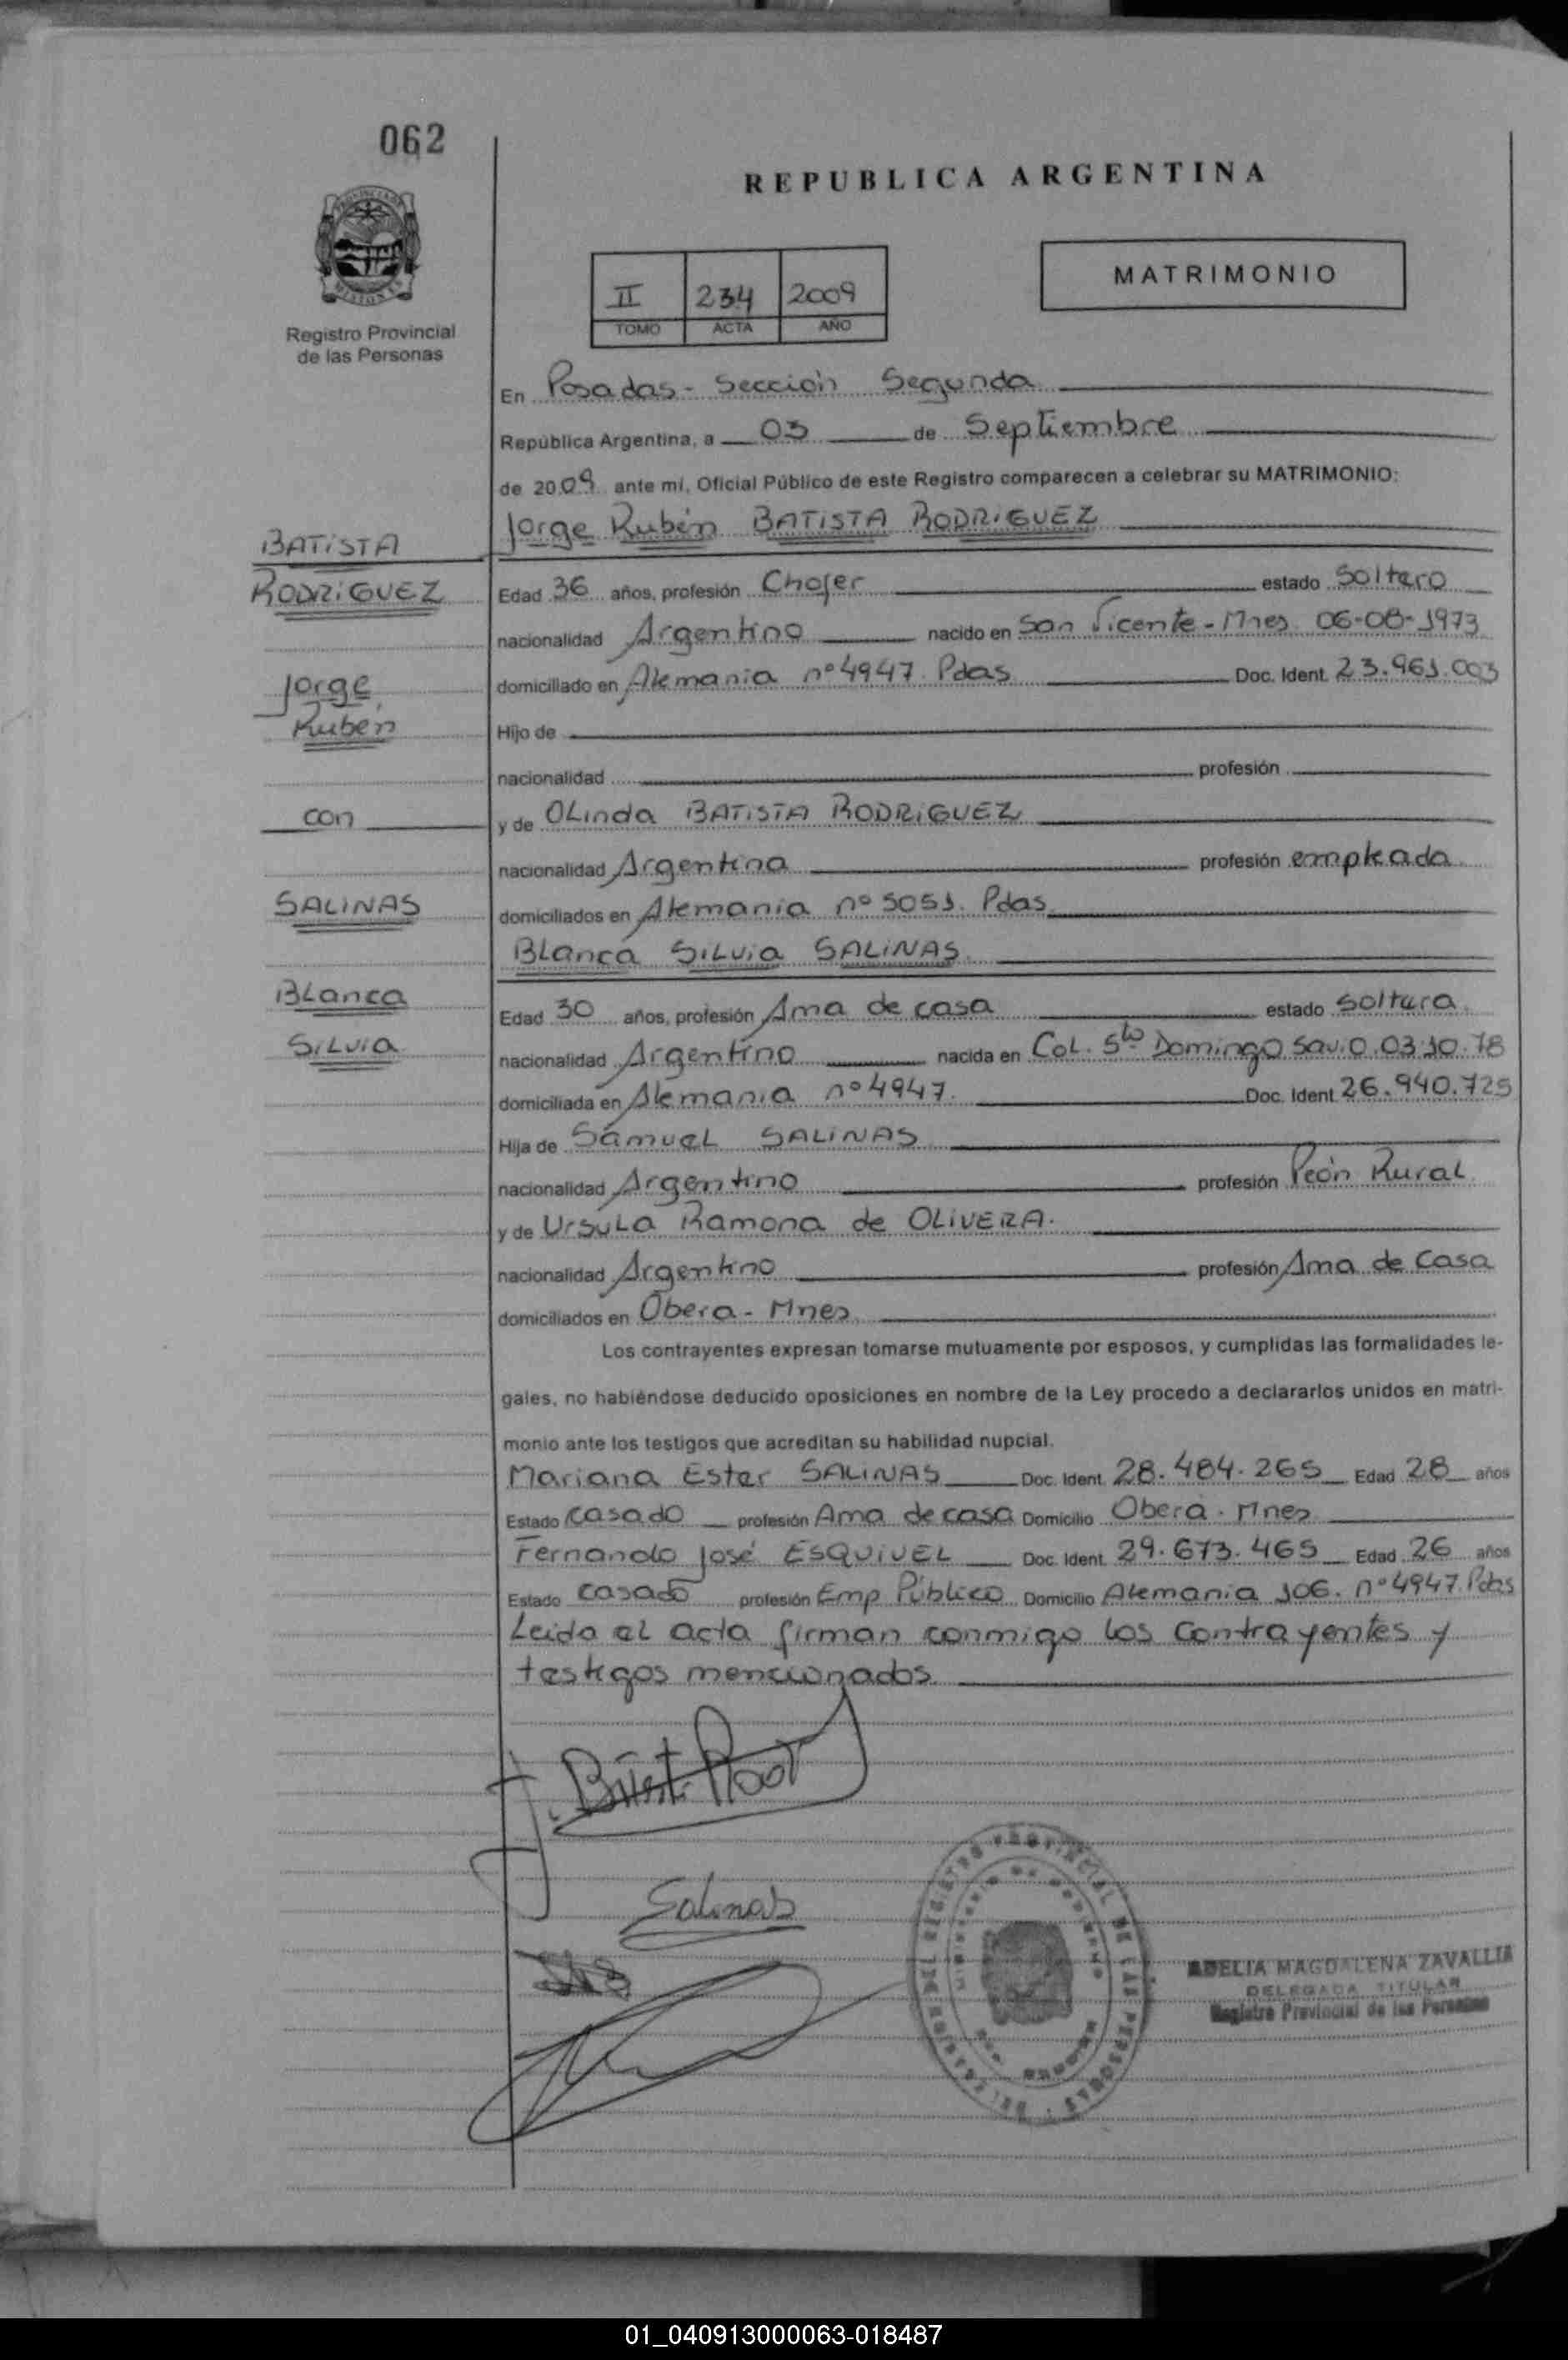 062
REPUBLICA ARGENTINA
MATRIMONIO
II 234 2009
TOMO ACTA AÑO
Registro Provincial
de las Personas
En Posadas - Sección Segunda
República Argentina, a 03 de Septiembre
de 2009 ante mi, Oficial Público de este Registro comparecen a celebrar su MATRIMONIO:
Jorge Rubén BATISTA RODRIGUEZ
BATISTA
RODRIGUEZ
Jorge
Ruben
con
SALINAS
Blanca
Silvia
Edad 36 años, profesión Chofer estado Soltero
nacionalidad Argentino nacido en San Vicente - Mnes 06-08-1973
domiciliado en Alemania nº 4947. Pdas Doc. Ident. 23.961.003
Hijo de
nacionalidad profesión
y de Olinda BATISTA RODRIGUEZ
nacionalidad Argentina profesión empleada
domiciliados en Alemania nº 5051. Pdas
Blanca Silvia SALINAS
Edad 30 años, profesión Ama de casa estado Soltera
nacionalidad Argentino nacida en Col. Sto Domingo Savio 03.10.78
domiciliada en Alemania nº 4947. Doc. Ident. 26.940.725
Hija de Samuel SALINAS
nacionalidad Argentino profesión Peón Rural
y de Ursula Ramona de OLIVERA.
nacionalidad Argentino profesión Ama de Casa
domiciliados en Obera - Mnes
Los contrayentes expresan tomarse mutuamente por esposos, y cumplidas las formalidades le-
gales, no habiéndose deducido oposiciones en nombre de la Ley procedo a declararlos unidos en matri-
monio ante los testigos que acreditan su habilidad nupcial.
Mariana Ester SALINAS Doc. Ident. 28.484.265 Edad 28 años
Estado casado profesión Ama de casa Domicilio Oberá - Mnes
Fernando José ESQUIVEL Doc. Ident. 29.673.465 Edad 26 años
Estado casado profesión Emp Público Domicilio Alemania 106. nº 4947. Pdas
Leida el acta firman conmigo los contrayentes y
testigos mencionados
Salinas
ADELIA MAGDALENA ZAVALLIA
DELEGADA TITULAR
Registro Provincial de las Personas
01_040913000063-018487